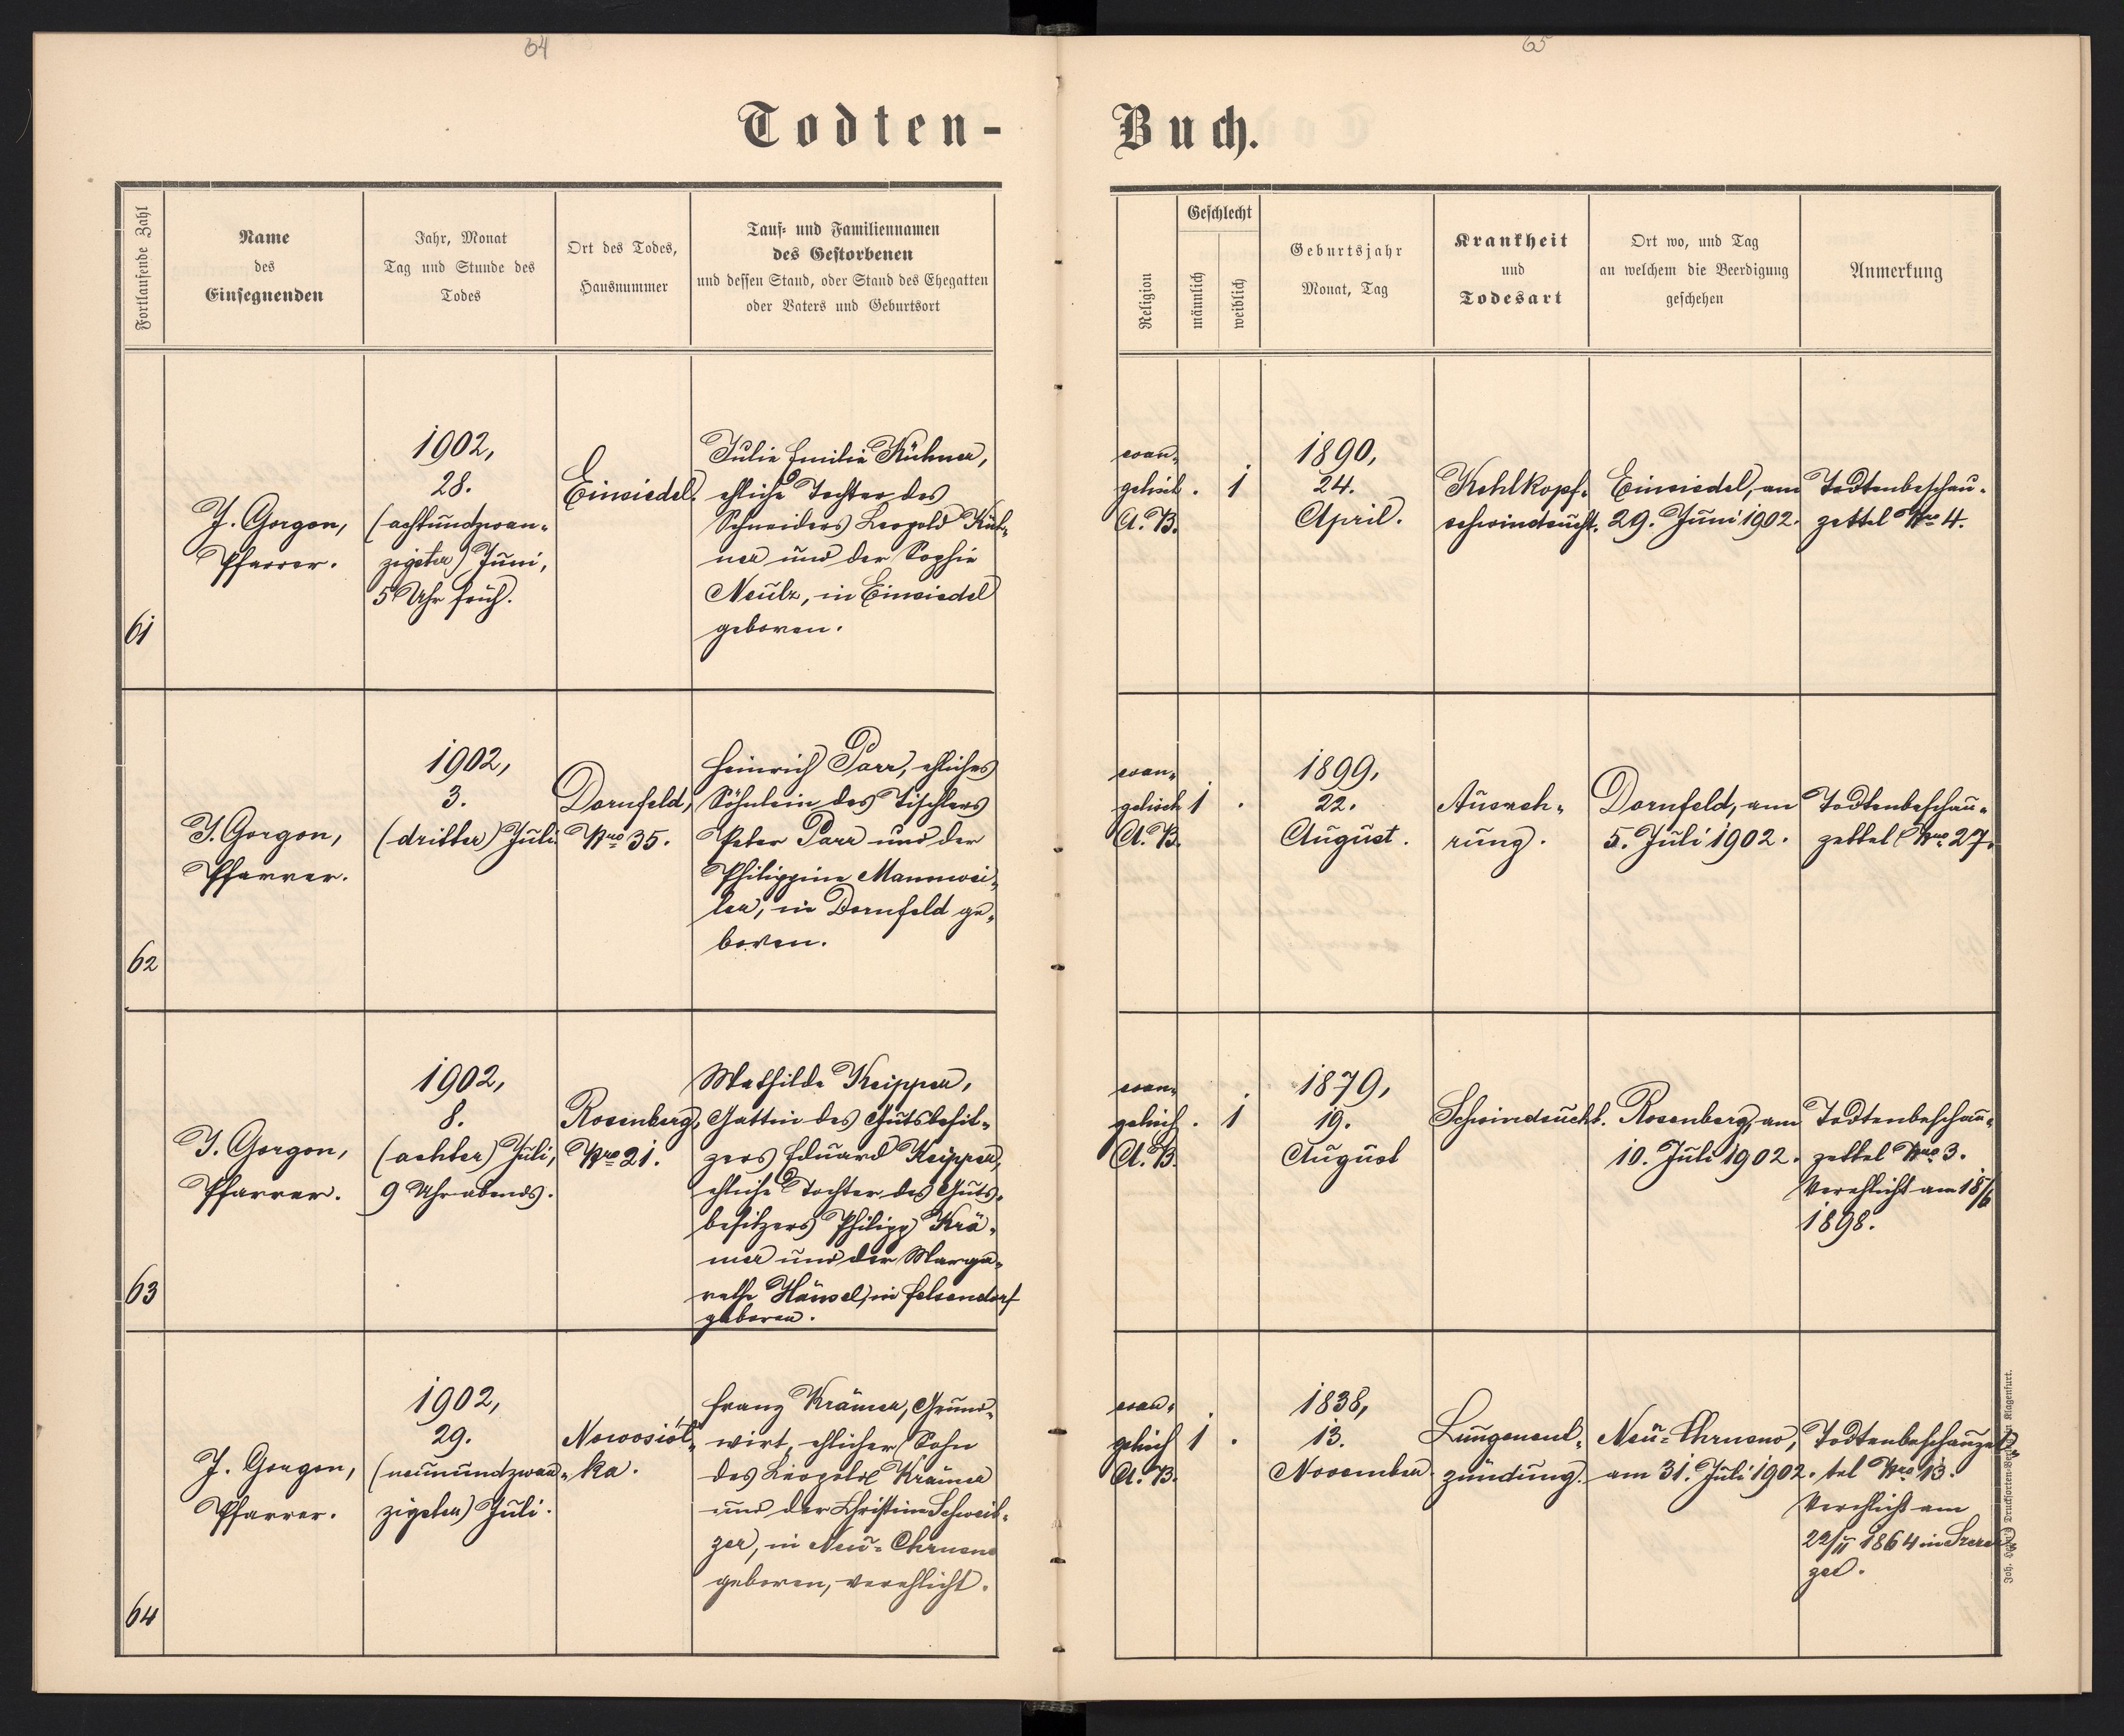 64
65
Todten-
Buch.
Fortlaufende Zahl
Name
des
Einsegnenden
Jahr, Monat
Tag und Stunde des
Todes
Ort des Todes,
Hausnummer
Tauf- und Familiennamen
des Gestorbenen
und dessen Stand, oder Stand des Ehegatten
oder Vaters und Geburtsort
Religion
Geschlecht
männlich
weiblich
Geburtsjahr
Monat, Tag
Krankheit
und
Todesart
Ort wo, und Tag
an welchem die Beerdigung
geschehen
Anmerkung
61
J. Gorgon,
Pfarrer.
1902,
28.
(achtundzwan-
zigster) Juni,
5 Uhr früh.
Einsiedel.
Julie Emilie Kühner,
ehliche Tochter des
Schneiders Leopold Küh-
ner und der Sophie
in Einsiedel
geboren.
evan-
gelisch
A. B.
. 1
1890,
24.
April.
Kehlkopf-
schwindsucht.
Einsiedel, am
29. Juni 1902.
Todtenbeschau-
zettel Nro 4.
62
J. Gorgon,
Pfarrer.
1902,
3.
(dritter) Juli.
Dornfeld,
Nro 35.
Heinrich Parr, ehliches
Söhnlein des Tischlers
Peter Parr und der
Philippine Mannwei-
ler, in Dornfeld ge-
boren.
evan-
gelisch
A. B.
1 .
1899,
22.
August.
Auszeh-
rung.
Dornfeld, am
5. Juli 1902.
Todtenbeschau-
zettel Nro 27.
63
J. Gorgon,
Pfarrer.
1902,
8.
(achter) Juli,
9 Uhr abends.
Rosenberg,
Nro 21.
Mathilde Keipper,
Gattin des Gutsbesit-
zers Eduard Keipper,
ehliche Tochter des Guts-
besitzers Philipp Krä-
mer und der Marga-
rethe Hänsel, in Felsendorf
geboren.
evan-
gelisch
A. B.
. 1
1879,
19.
August
Schwindsucht.
Rosenberg, am
10. Juli 1902.
Todtenbeschau-
zettel Nro 3.
Verehlicht am 18/6
1898.
64
J. Gorgon,
Pfarrer.
1902,
29.
(neunundzwan-
zigster) Juli.
Nowosiół-
ka.
Franz Krämer, Grund-
wirt, ehlicher Sohn
des Leopold Krämer
und der Christine Schweit-
zer, in Neu-Chrusno
geboren, verehlicht.
evan-
gelisch
A. B.
1 .
1838,
13.
November.
Lungenent-
zündung.
Neu-Chrusno,
am 31. Juli 1902.
Todtenbeschauzet-
tel Nro 13.
Verehlicht am
22/II 1864 in Szerze
zec.